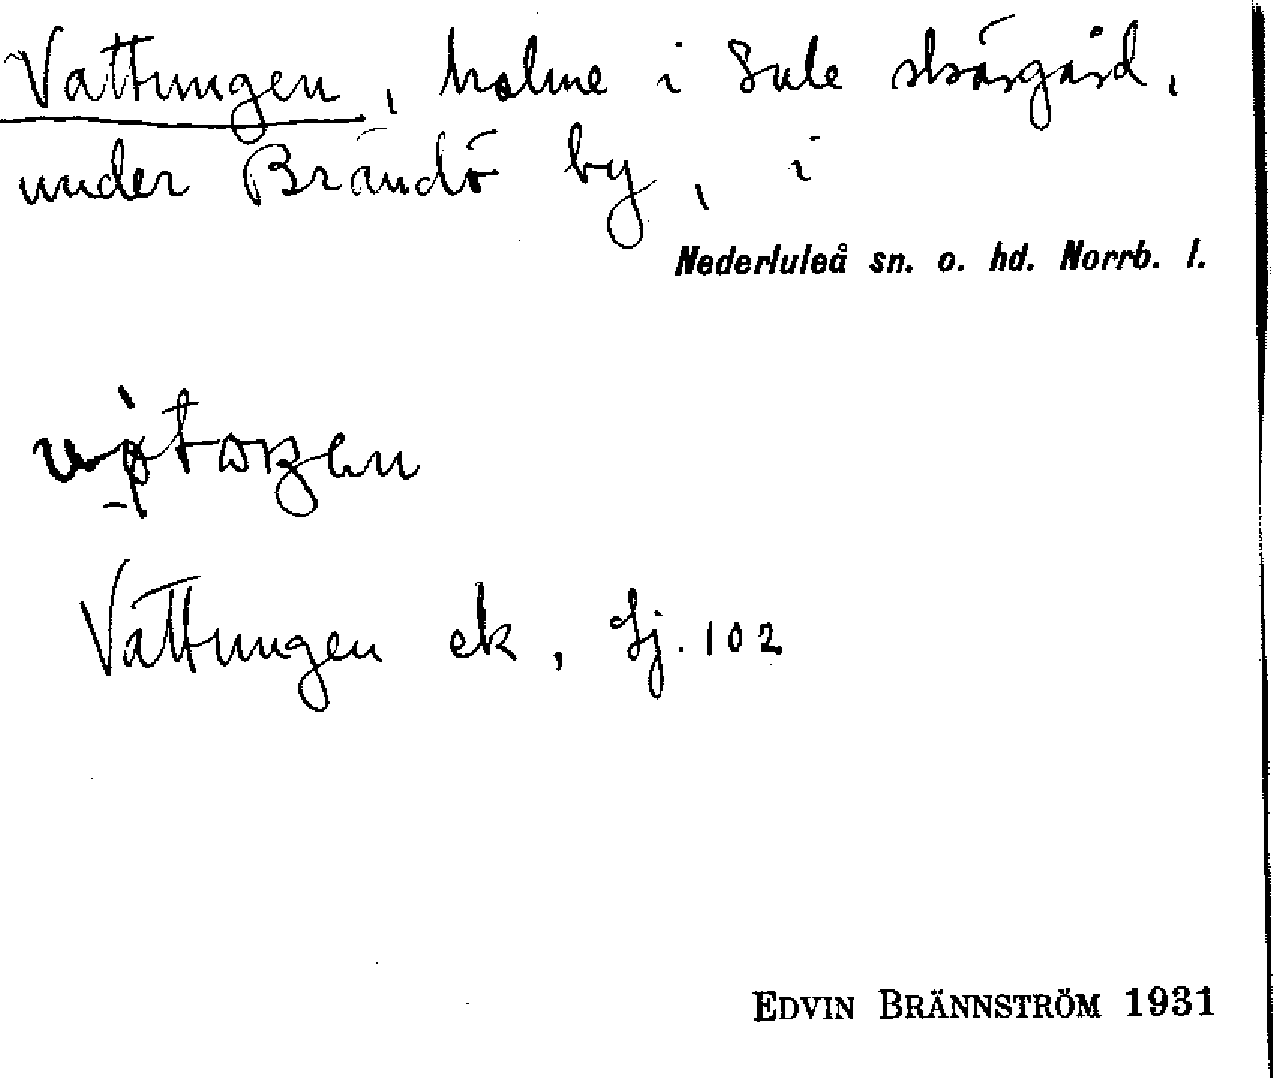 Vattungen, holme i Lule skärgård,
under Brändö by, i
Nederluleå sn. o. hd. Norrb. l.
Vattungen ek, Sj. 102
EDVIN BRÄNNSTRÖM 1931